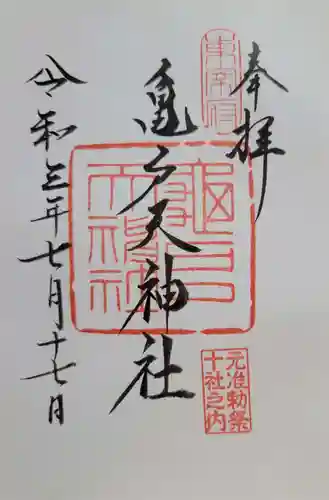 奉拝
亀戸天神社
令和三年七月十七日
東宰府
亀戸天神社
元治勅祭
十社之内